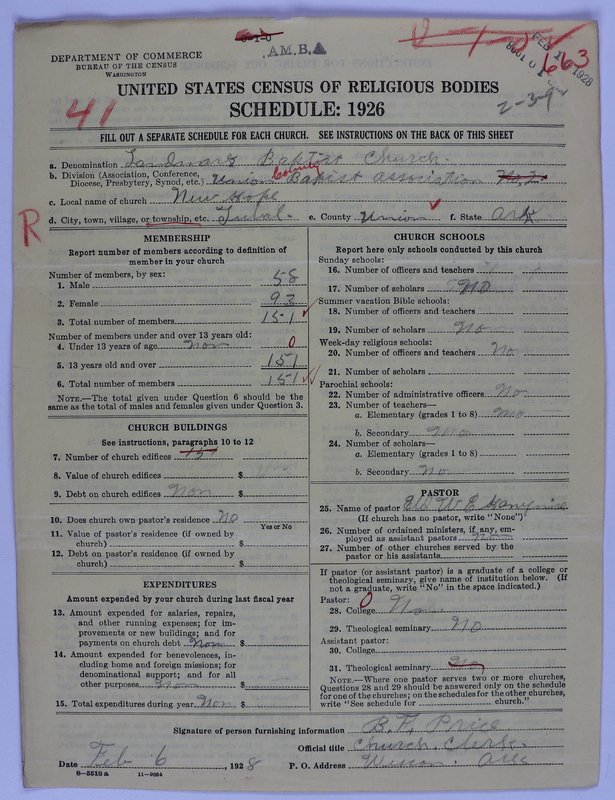 A.M.B.A
41
FEB 1928
663
2-3-9
DEPARTMENT OF COMMERCE
BUREAU OF THE CENSUS
WASHINGTON
UNITED STATES CENSUS OF RELIGIOUS BODIES
SCHEDULE: 1926
FILL OUT A SEPARATE SCHEDULE FOR EACH CHURCH. SEE INSTRUCTIONS ON THE BACK OF THIS SHEET
a. Denomination Landmark Baptist Church.
b. Division (Association, Conference, Diocese, Presbytery, Synod, etc.) Union County Baptist Association
c. Local name of church New Hope
d. City, town, village, or township, etc. Tubal. e. County Union f. State Ark
R
MEMBERSHIP
Report number of members according to definition of
member in your church
Number of members, by sex:
1. Male 58
2. Female 93
3. Total number of members 151
Number of members under and over 13 years old:
4. Under 13 years of age Non 0
5. 13 years old and over 151
6. Total number of members 151
NOTE.—The total given under Question 6 should be
same as the total of males and females given under Question 3.
CHURCH BUILDINGS
See instructions, paragraphs 10 to 12
7. Number of church edifices 151
8. Value of church edifices $
9. Debt on church edifices Non $
10. Does church own pastor's residence No
Yes or No
11. Value of pastor's residence (if owned by
church) $
12. Debt on pastor's residence (if owned by
church) $
EXPENDITURES
Amount expended by your church during last fiscal year
13. Amount expended for salaries, repairs,
and other running expenses; for im-
provements or new buildings; and for
payments on church debt Non $
14. Amount expended for benevolences, in-
cluding home and foreign missions; for
denominational support; and for all
other purposes Non $
15. Total expenditures during year Non $
CHURCH SCHOOLS
Report here only schools conducted by this church
Sunday schools:
16. Number of officers and teachers
17. Number of scholars No
Summer vacation Bible schools:
18. Number of officers and teachers
19. Number of scholars No
Week-day religious schools:
20. Number of officers and teachers No
21. Number of scholars
Parochial schools:
22. Number of administrative officers No
23. Number of teachers—
a. Elementary (grades 1 to 8) No
b. Secondary No
24. Number of scholars—
a. Elementary (grades 1 to 8)
b. Secondary No
PASTOR
25. Name of pastor W E
(If church has no pastor, write "None")
26. Number of ordained ministers, if any, em-
ployed as assistant pastors Non
27. Number of other churches served by the
pastor or his assistants
If pastor (or assistant pastor) is a graduate of a college or
theological seminary, give name of institution below. (If
not a graduate, write "No" in the space indicated.)
Pastor: 0
28. College No
29. Theological seminary No
Assistant pastor:
30. College
31. Theological seminary No
NOTE.—Where one pastor serves two or more churches,
Questions 28 and 29 should be answered only on the schedule
for one of the churches; on the schedules for the other churches,
write "See schedule for church."
Signature of person furnishing information B. F. Price
Official title Church Clerk.
Date Feb 6, 1928 P. O. Address Wesson. Ark
8—5518 a 11—9054